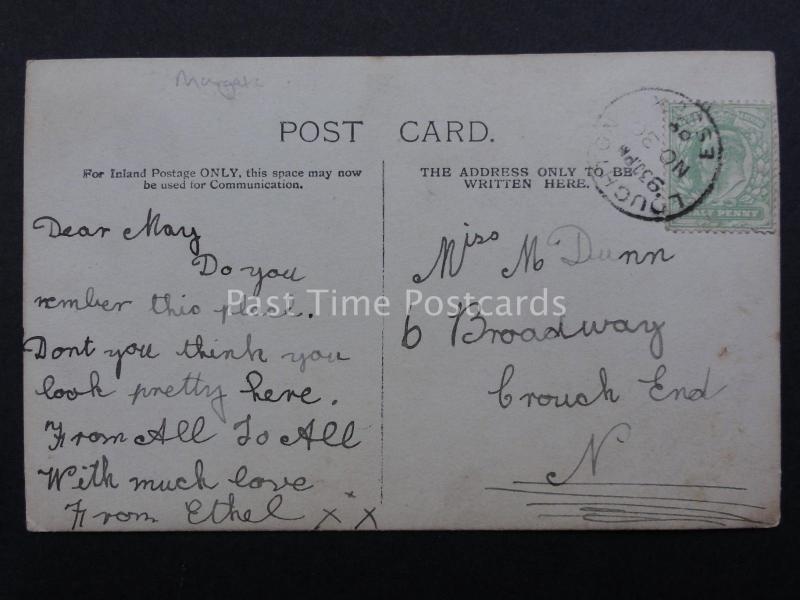 Margate
POST CARD.
For Inland Postage ONLY, this space may now
be used for Communication.
THE ADDRESS ONLY TO BE
WRITTEN HERE.
LOUGHTON ESSEX
9 30 PM
NO 30
HALF PENNY
Dear May
Do you
rember this place.
Dont you think you
look pretty here.
From All To All
With much love
From Ethel x x x
Miss M Dunn
6 Broadway
Crouch End
N
Past Time Postcards